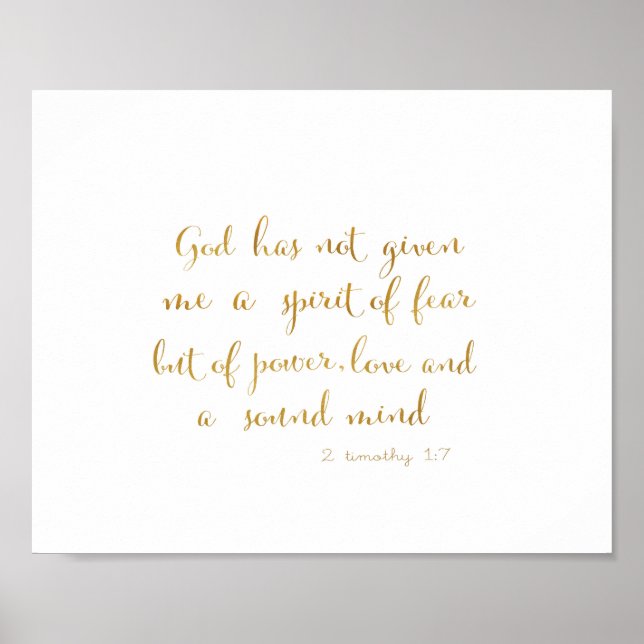 God has not given
me a spirit of fear
but of power, love and
a sound mind
2 timothy 1:7